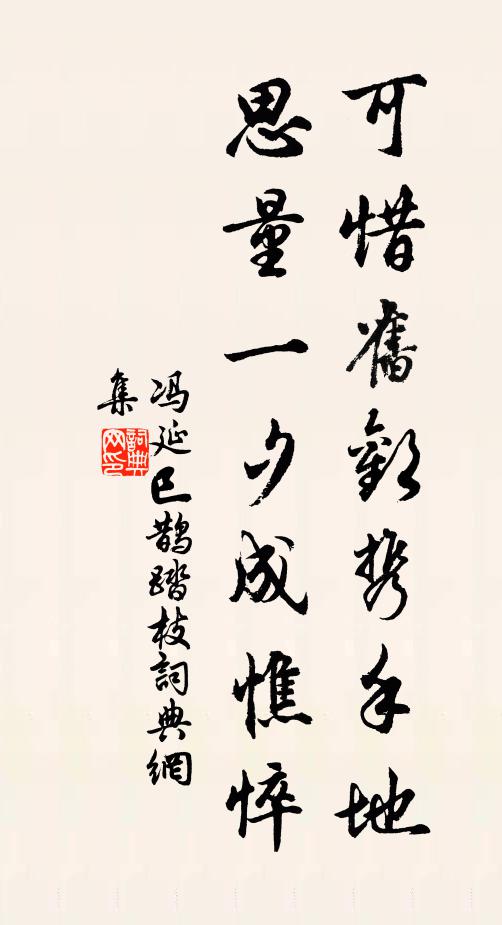 可惜舊歡携手地
思量一夕成憔悴
冯延巳鹊踏枝詞典網
集
詞典网印